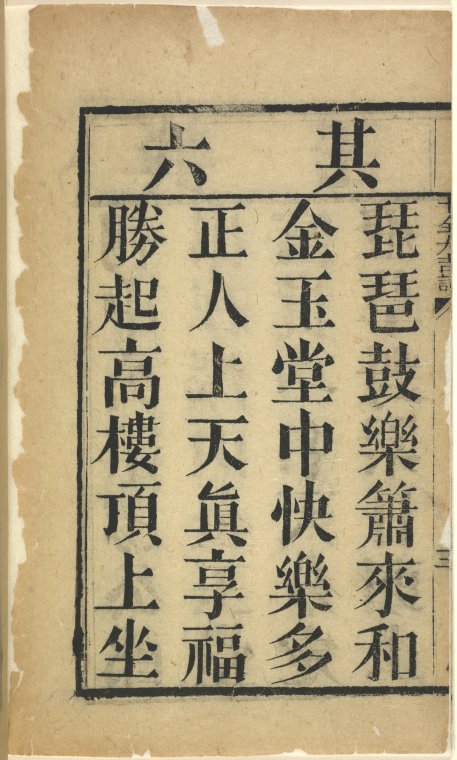 其六
琵琶鼓樂簫來和
金玉堂中快樂多
正人上天眞享福
勝起高樓頂上坐